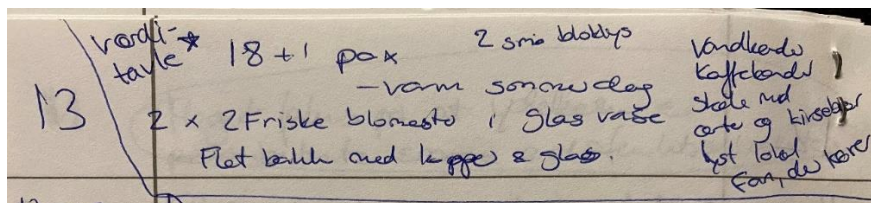 13
vordi-
tavle * 18 + 1 pax 2 små bloklys
- varm sommerdag
2 x 2 Friske blomester i glas vase
Flet bakke med kopper & glas.
Vandkande
Kaffekande
skåle med
ærter og kirsebær
lyst lokal